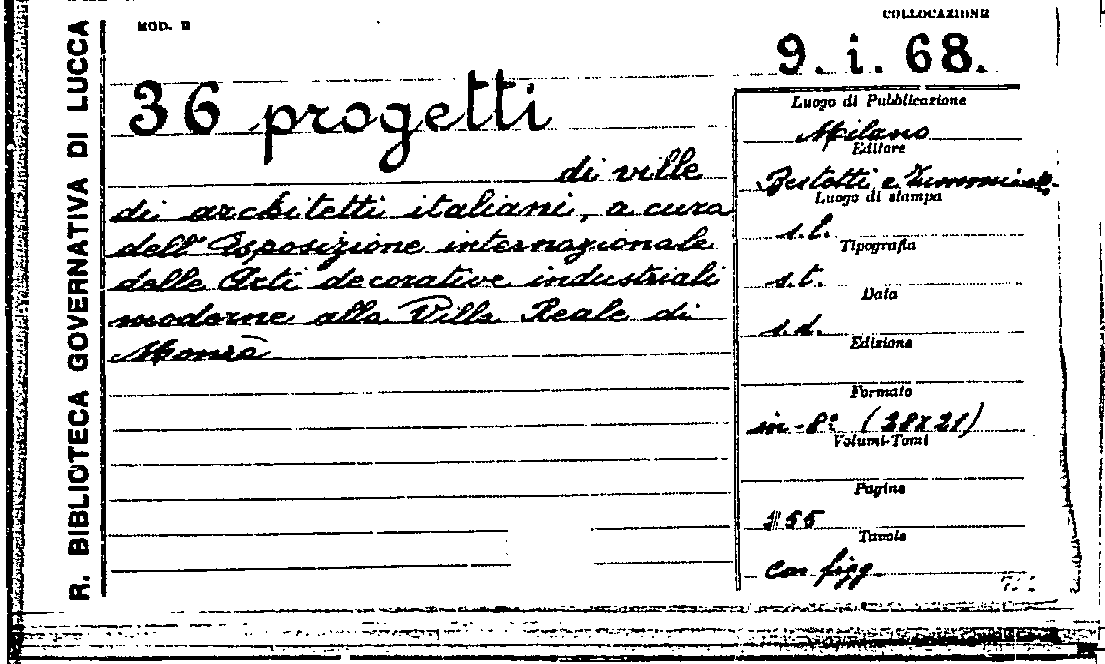 R. BIBLIOTECA GOVERNATIVA DI LUCCA
MOD. B
COLLOCAZIONE
9. i. 68.
36 progetti
di ville
di architetti italiani, a cura
dell'Esposizione internazionale
delle Arti decorative industriali
moderne alla Villa Reale di
Monza
Luogo di Pubblicazione
Milano
Editore
Bestetti e
Luogo di stampa
s.l.
Tipografia
s.t.
Data
s.d.
Edizione
Formato
in-8° (28x21)
Volumi-Tomi
Pagine
155
Tavole
con figg.